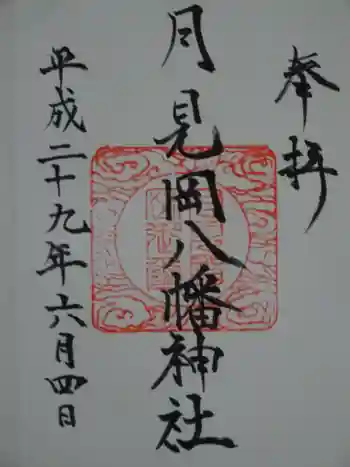 奉拝
月見岡八幡神社
平成二十九年六月四日